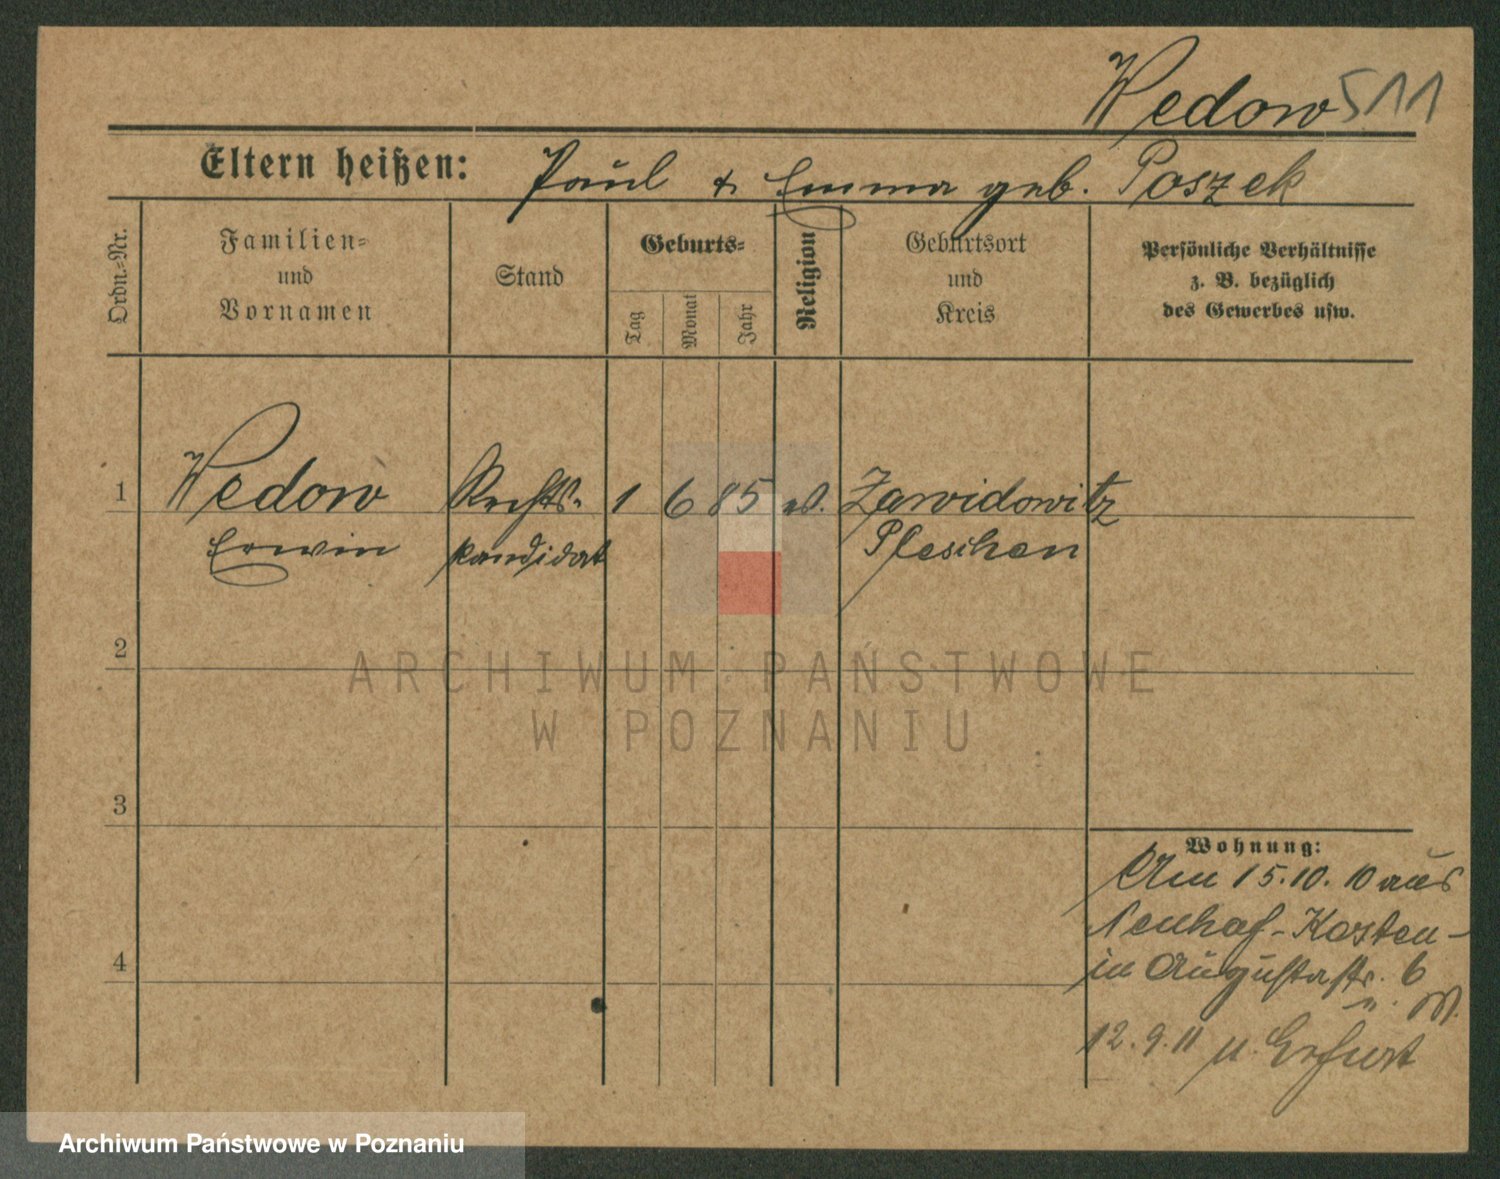 Wedow 511
Eltern heißen: Paul & Emma geb. Poszek
Ordn.-Nr.
Familien-
und
Vornamen
Stand
Geburts-
Tag
Monat
Jahr
Religion
Geburtsort
und
Kreis
Persönliche Verhältnisse
z. B. bezüglich
des Gewerbes usw.
1 Wedow Rechts- 1 6 85 ev. Zawidowitz
Erwin kandidat Pleschen
2
ARCHIWUM PAŃSTWOWE
W POZNANIU
3
Wohnung:
Am 15.10.10 aus
Neuhof-Kosten-
4
in Augustastr. 6
b. M.
12.9.11 n. Erfurt
Archiwum Państwowe w Poznaniu